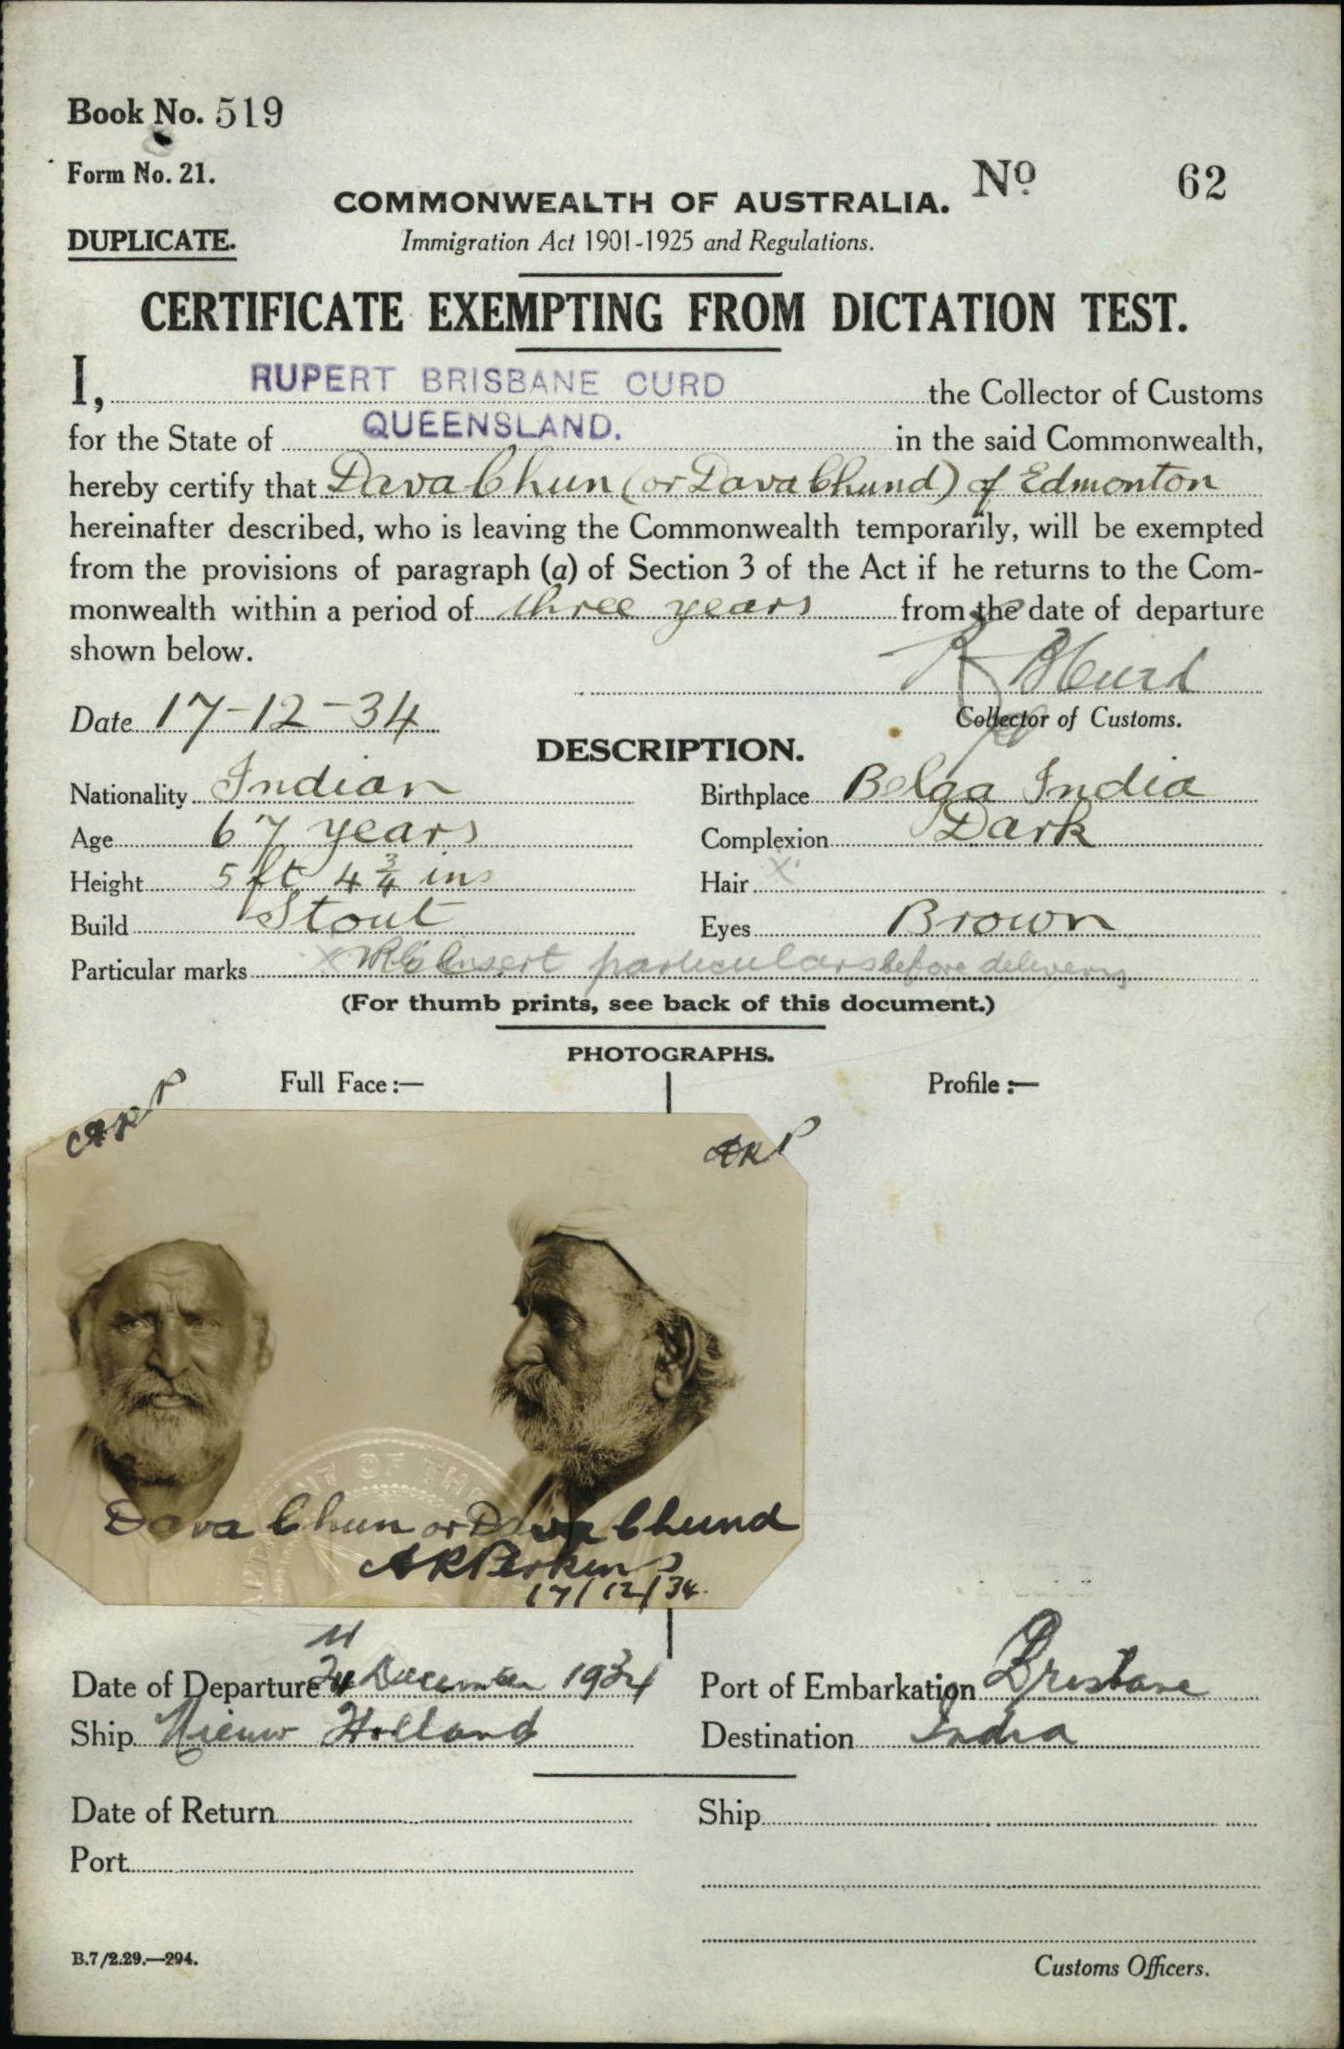 Book No. 519
Form No. 21.
No 62
COMMONWEALTH OF AUSTRALIA.
DUPLICATE.
Immigration Act 1901-1925 and Regulations.
CERTIFICATE EXEMPTING FROM DICTATION TEST.
I, RUPERT BRISBANE CURD the Collector of Customs
for the State of QUEENSLAND. in the said Commonwealth,
hereby certify that Dava Chun (or Dava Chund) of Edmonton
hereinafter described, who is leaving the Commonwealth temporarily, will be exempted
from the provisions of paragraph (a) of Section 3 of the Act if he returns to the Com-
monwealth within a period of three years from the date of departure
shown below.
R B Curd
Date 17-12-34
Collector of Customs.
DESCRIPTION.
Nationality Indian Birthplace Belga India
Age 67 years Complexion Dark
Height 5 ft 4 3/4 ins Hair X
Build Stout Eyes Brown
Particular marks X insert particulars before delivery
(For thumb prints, see back of this document.)
PHOTOGRAPHS.
Full Face:— Profile:—
ARP
ARP
Dava Chun or Dava Chund
A R Perkins
17/12/34.
Date of Departure 24 December 1934 Port of Embarkation Brisbane
Ship Nieuw Holland Destination India
Date of Return Ship
Port
B.7/2.29.—294.
Customs Officers.